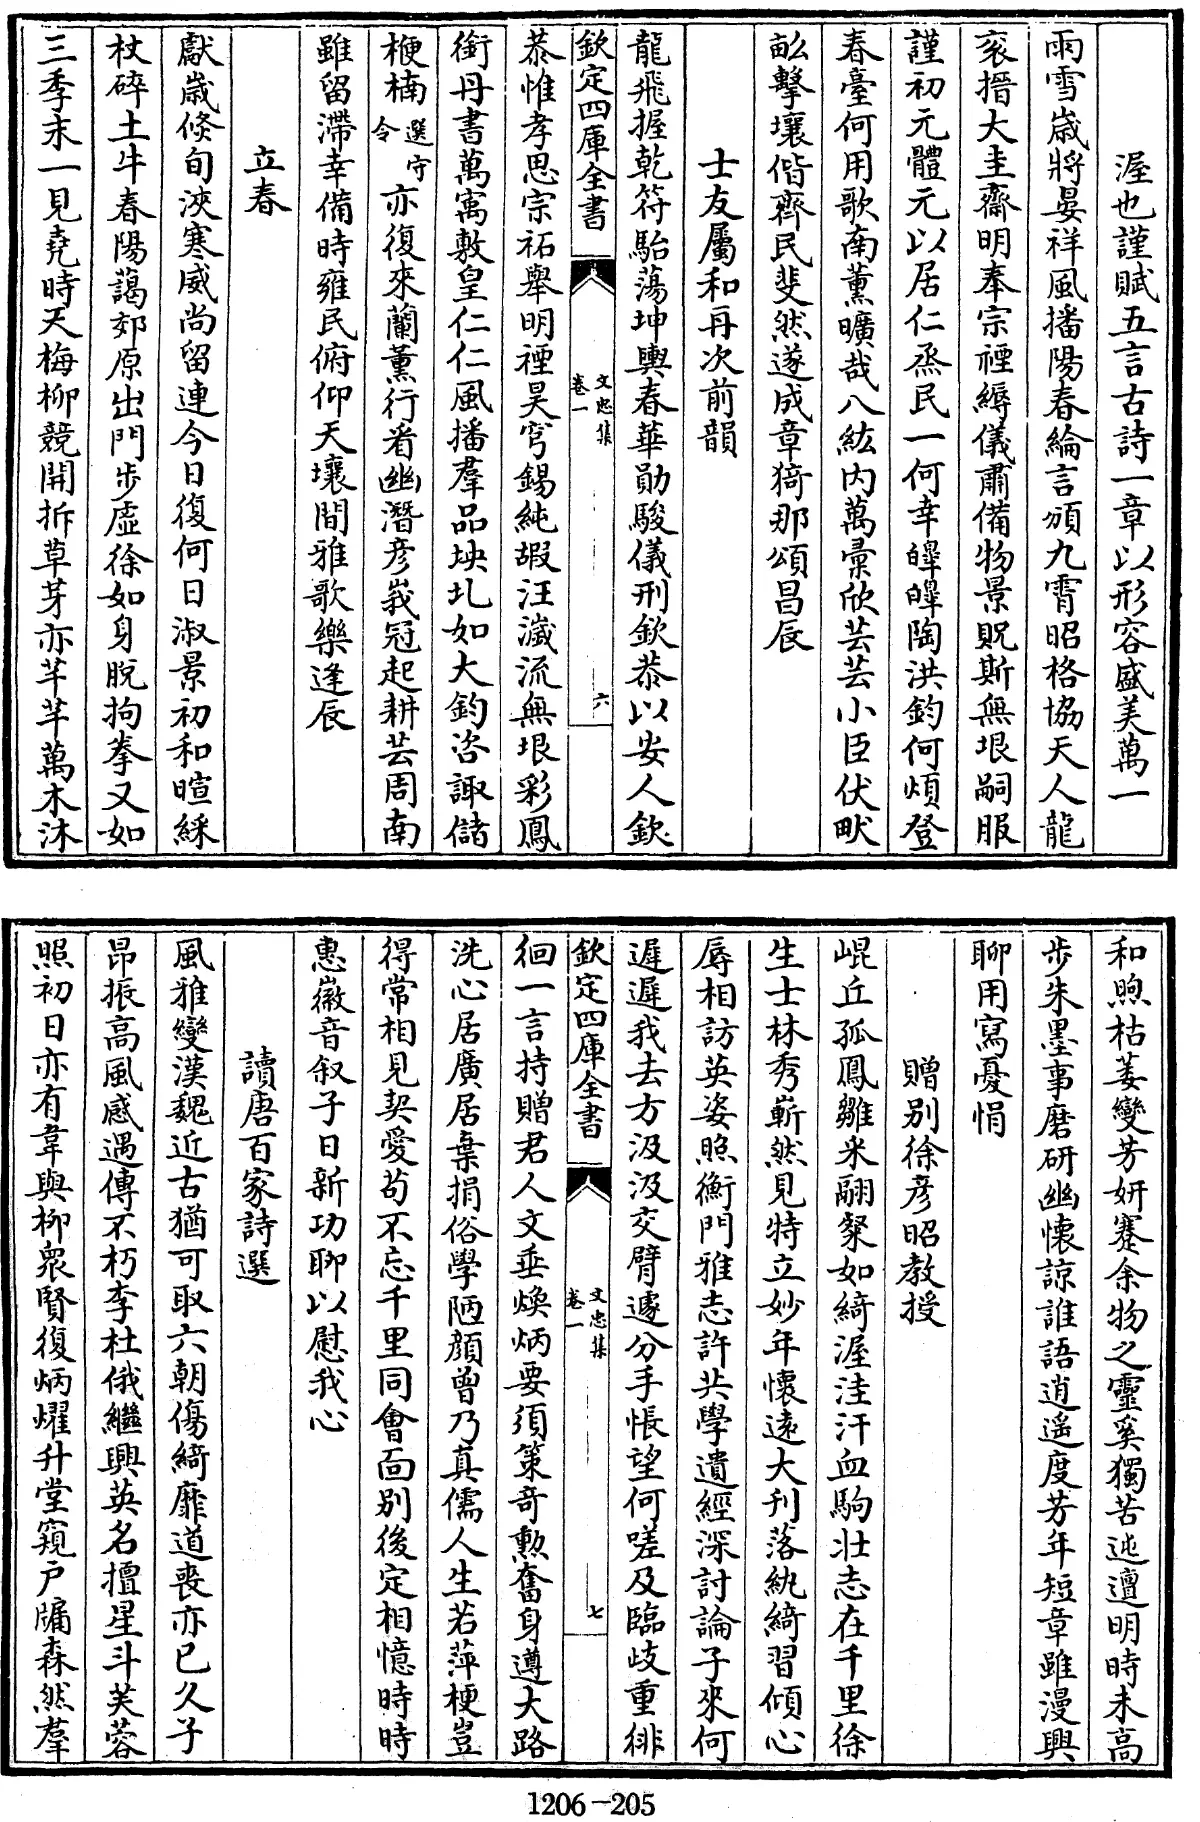 渥也謹賦五言古詩一章以形容盛美萬一
雨雪歲將晏祥風播陽春綸言頒九霄昭格協天人龍
衮搢大圭齋明奉宗禋縟儀肅備物景貺斯無垠嗣服
謹初元體元以居仁烝民一何幸皥皥陶洪鈞何煩登
春臺何用歌南薰曠哉八紘内萬彙欣芸芸小臣伏畎
畝擊壤偕齊民斐然遂成章猗那頌昌辰
士友屬和再次前韻
龍飛握乾符駘蕩坤輿春華勛駿儀刑欽恭以安人欽
欽定四庫全書
文忠集
卷一
六
恭惟孝思宗祏舉明禋昊穹錫純嘏汪濊流無垠彩鳳
銜丹書萬寓敷皇仁仁風播羣品坱圠如大鈞咨諏儲
楩楠選守令亦復來蘭薰行看幽潛彦峩冠起耕芸周南
雖留滯幸備時雍民俯仰天壤間雅歌樂逢辰
立春
獻歲倐旬浹寒威尚留連今日復何日淑景初和暄綵
杖碎土牛春陽藹郊原出門步虛徐如身脫拘拳又如
三季末一見堯時天梅柳競開拆草芽亦芊芊萬木沐
和煦枯萎變芳妍蹇余物之靈奚獨苦迍邅明時未高
步朱墨事磨研幽懷諒誰語逍遥度芳年短章雖漫興
聊用寫憂悁
贈别徐彦昭教授
崐丘孤鳳雛米翮粲如綺渥洼汗血駒壯志在千里徐
生士林秀嶄然見特立妙年懷遠大刋落紈綺習傾心
辱相訪英姿照衡門雅志許共學遺經深討論子來何
遲遲我去方汲汲交臂遽分手悵望何嗟及臨歧重徘
欽定四庫全書
文忠集
卷一
七
徊一言持贈君人文垂煥炳要須策奇勲奮身遵大路
洗心居廣居棄捐俗學陋顔曾乃真儒人生若萍梗豈
得常相見契愛苟不忘千里同會面别後定相憶時時
惠徽音叙子日新功聊以慰我心
讀唐百家詩選
風雅變漢魏近古猶可取六朝傷綺靡道喪亦已久子
昂振高風感遇傳不朽李杜俄繼興英名擅星斗芙蓉
照初日亦有韋與柳衆賢復炳燿升堂窺戶牖森然羣
1206-205